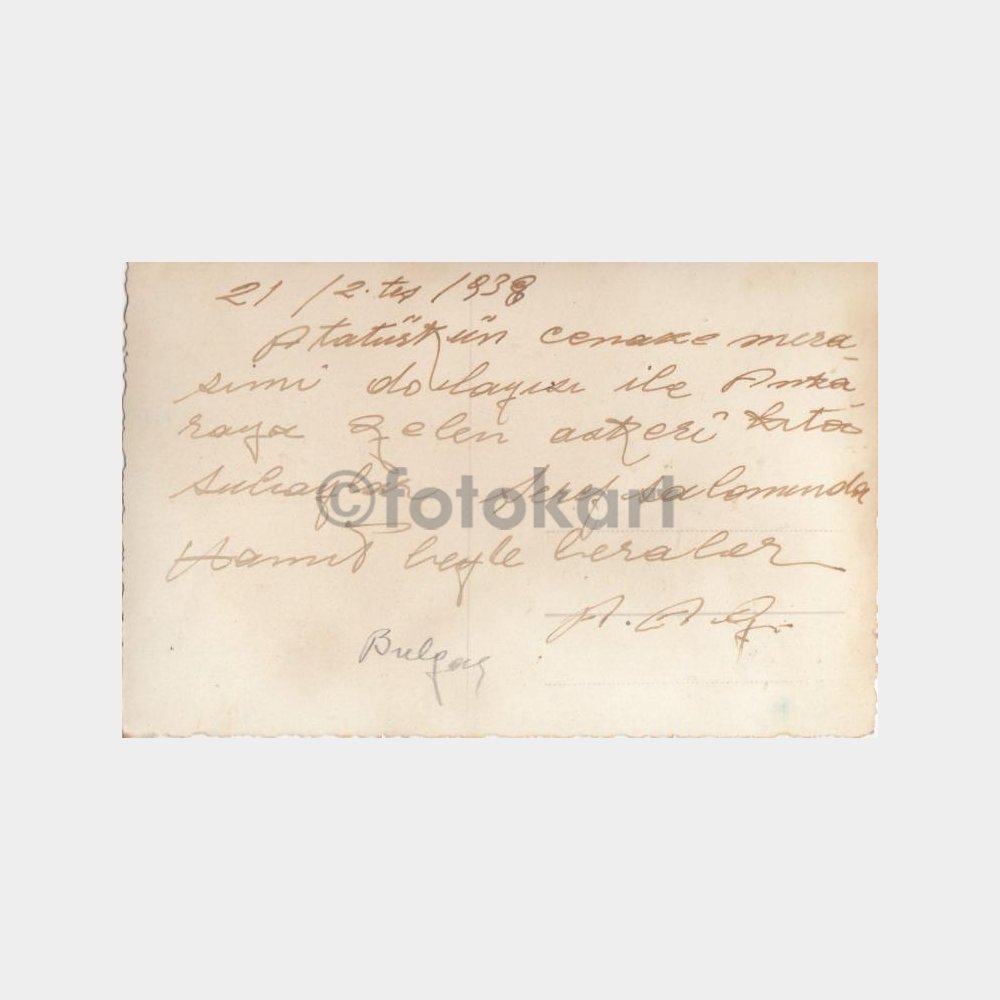 21 / 2.teş 1938
Atatürkün cenaze mera
simi dolayısı ile Anka
raya gelen askeri kıta
subayları Şeref salonunda
Hamit beyle beraber
A. A. G.
©fotokart